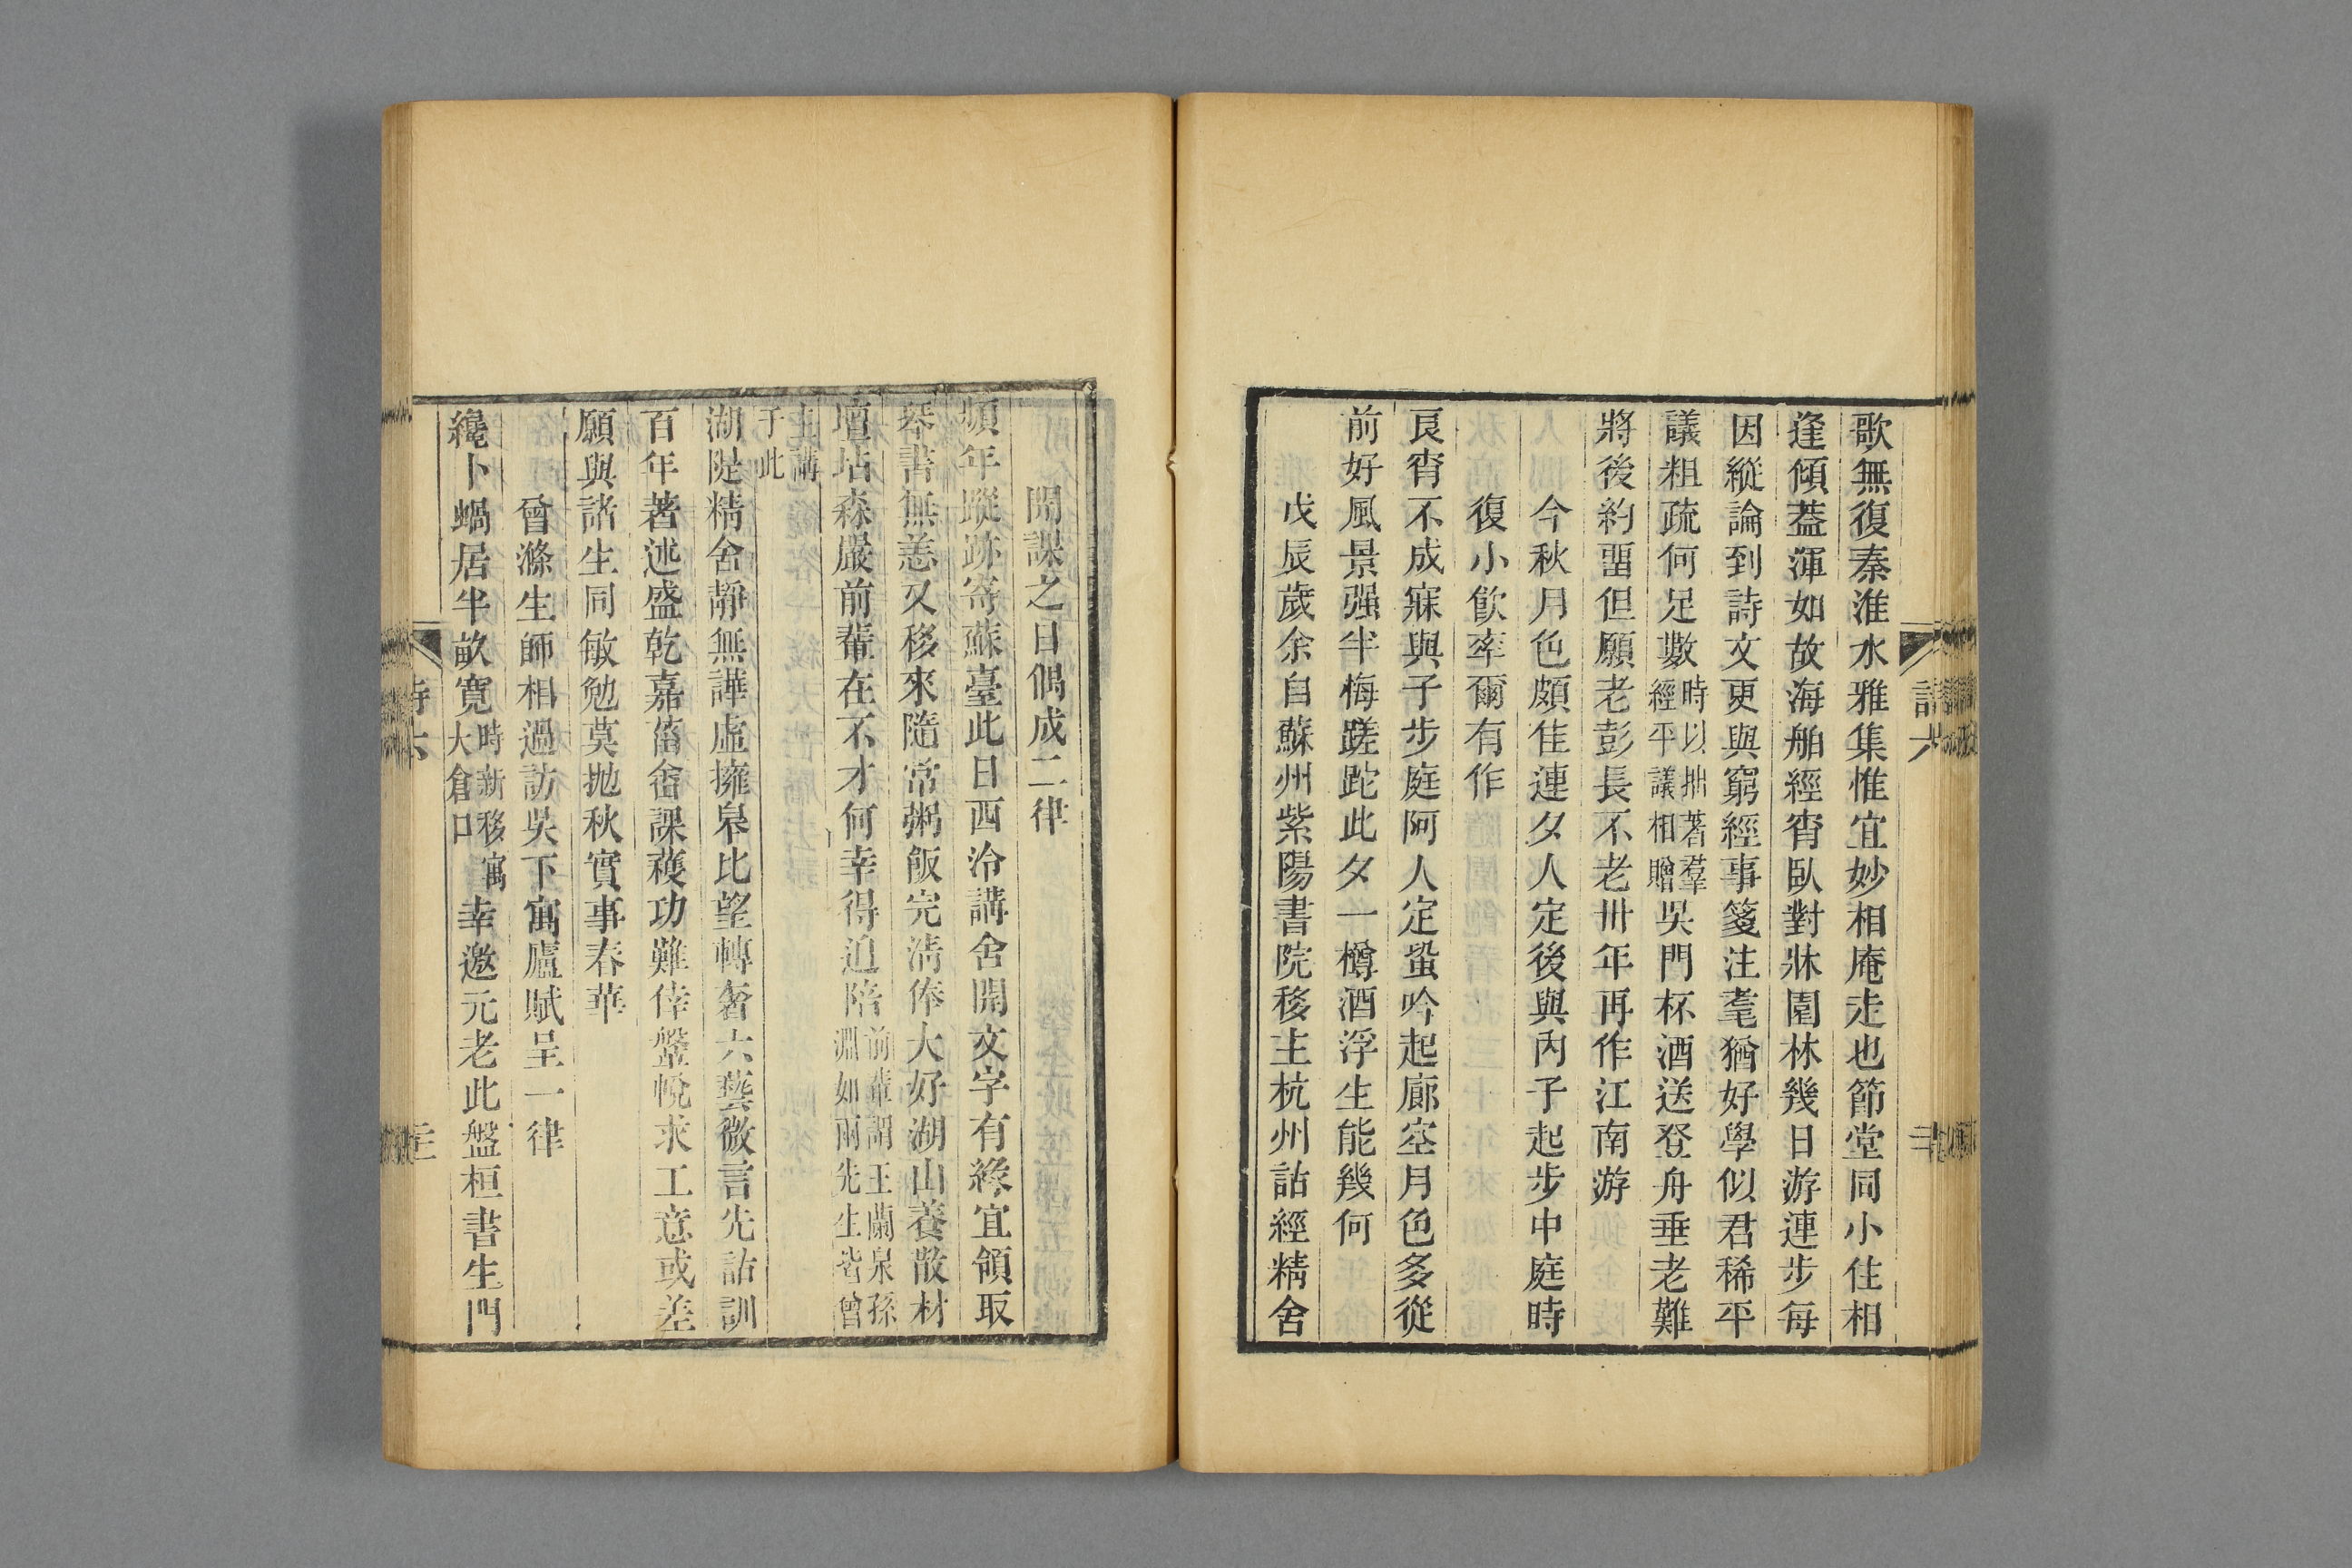 歌無復秦淮水雅集惟宜妙相庵走也節堂同小住相
逢傾蓋渾如故海舶經宵臥對牀園林幾日游連步每
因縱論到詩文更與窮經事箋注耄猶好學似君稀平
議粗疏何足數時以拙著羣經平議相贈吳門杯酒送登舟垂老難
將後約畱但願老彭長不老卅年再作江南游
今秋月色頗佳連夕人定後與內子起步中庭時
復小飲率爾有作
良宵不成寐與子步庭阿人定蛩吟起廊空月色多從
前好風景强半悔蹉跎此夕一樽酒浮生能幾何
戊辰歲余自蘇州紫陽書院移主杭州詁經精舍
開課之日偶成二律
頻年蹤跡寄蘇臺此日西泠講舍開文字有緣宜領取
琴書無恙又移來隨常粥飯完淸俸大好湖山養散材
壇坫森嚴前輩在不才何幸得追陪前輩謂王蘭泉孫淵如兩先生皆曾
主講于此
湖隄精舍靜無譁虛擁皋比望轉奢六藝微言先詁訓
百年著述盛乾嘉菑畬課穫功難倖鞶帨求工意或差
願與諸生同敏勉莫拋秋實事春華
曾滌生師相過訪吳下寓廬賦呈一律
纔卜蝸居半畝寬時新移寓大倉口幸邀元老此盤桓書生門